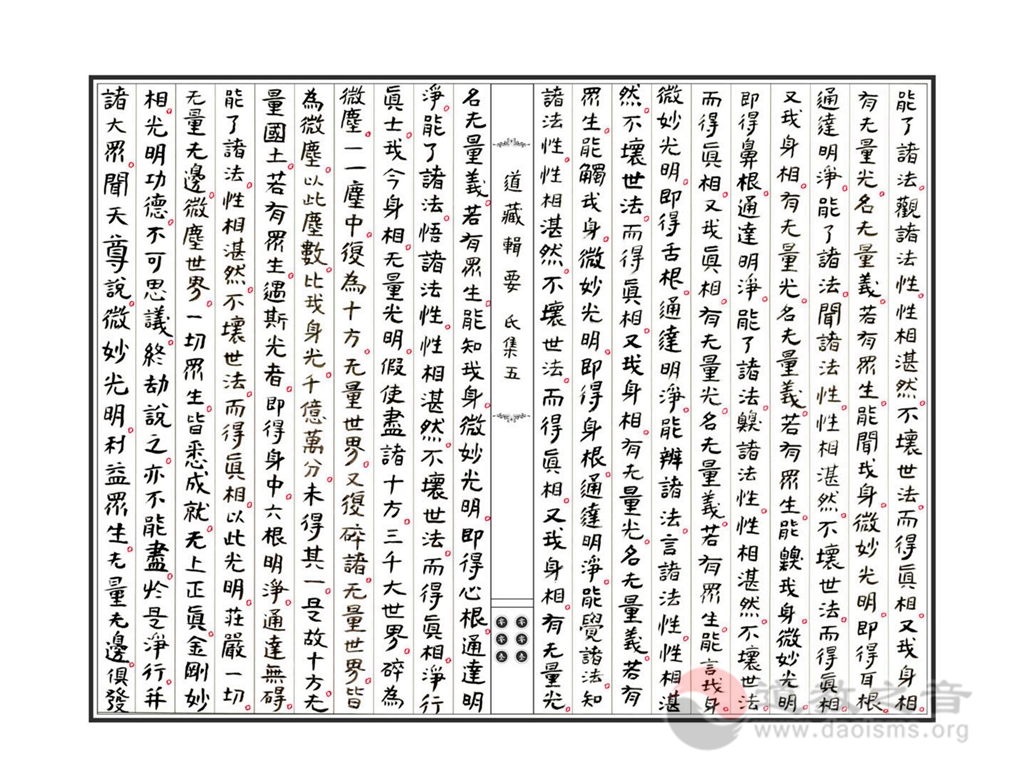 能了諸法。觀諸法性。性相湛然。不壞世法。而得眞相。又我身相。
有无量光。名无量義。若有眾生。能聞我身。微妙光明。即得耳根。
通達明淨。能了諸法。聞諸法性。性相湛然。不壞世法。而得眞相。
又我身相。有无量光。名无量義。若有眾生。能嗅我身。微妙光明。
即得鼻根。通達明淨。能了諸法。嗅諸法性。性相湛然。不壞世法。
而得眞相。又我眞相。有无量光。名无量義。若有眾生。能言我身。
微妙光明。即得舌根。通達明淨。能辨諸法。言諸法性。性相湛
然。不壞世法。而得眞相。又我身相。有无量光。名无量義。若有
眾生。能觸我身。微妙光明。即得身根。通達明淨。能覺諸法。知
諸法性。性相湛然。不壞世法。而得眞相。又我身相。有无量光。
道藏輯要 氐集五
名无量義。若有眾生。能知我身。微妙光明。即得心根。通達明
淨。能了諸法。悟諸法性。性相湛然。不壞世法。而得眞相。淨行
眞士。我今身相。无量光明。假使盡諸十方。三千大世界。碎為
微塵。一一塵中。復為十方。无量世界。又復碎諸。无量世界。皆
為微塵。以此塵數。比我身光。千億萬分。未得其一。是故十方。无
量國土。若有眾生。遇斯光者。即得身中。六根明淨。通達無碍。
能了諸法。性相湛然。不壞世法。而得眞相。以此光明。莊嚴一切。
无量无邊。微塵世界。一切眾生。皆悉成就。无上正眞。金剛妙
相。光明功德。不可思議。終劫說之。亦不能盡。於是淨行。并
諸大眾。聞天尊說。微妙光明。利益眾生。无量无邊。俱發
道教之音
www.daoisms.org